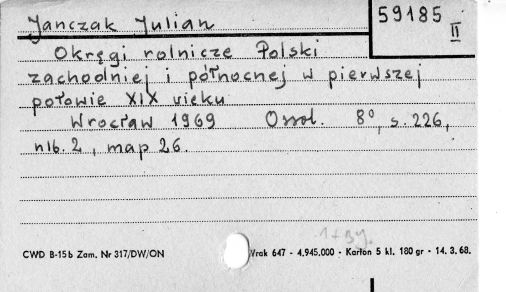 Janczak Julian
59185
II
Okręgi rolnicze Polski
zachodniej i północnej w pierwszej
połowie XIX wieku
Wrocław 1969 Ossol. 8°, s. 226,
nlb. 2, map 26.
CWD B-15b Zam. Nr 317/DW/ON
Wrak 647 - 4.945.000 - Karton 5 kl. 180 gr - 14. 3. 68.